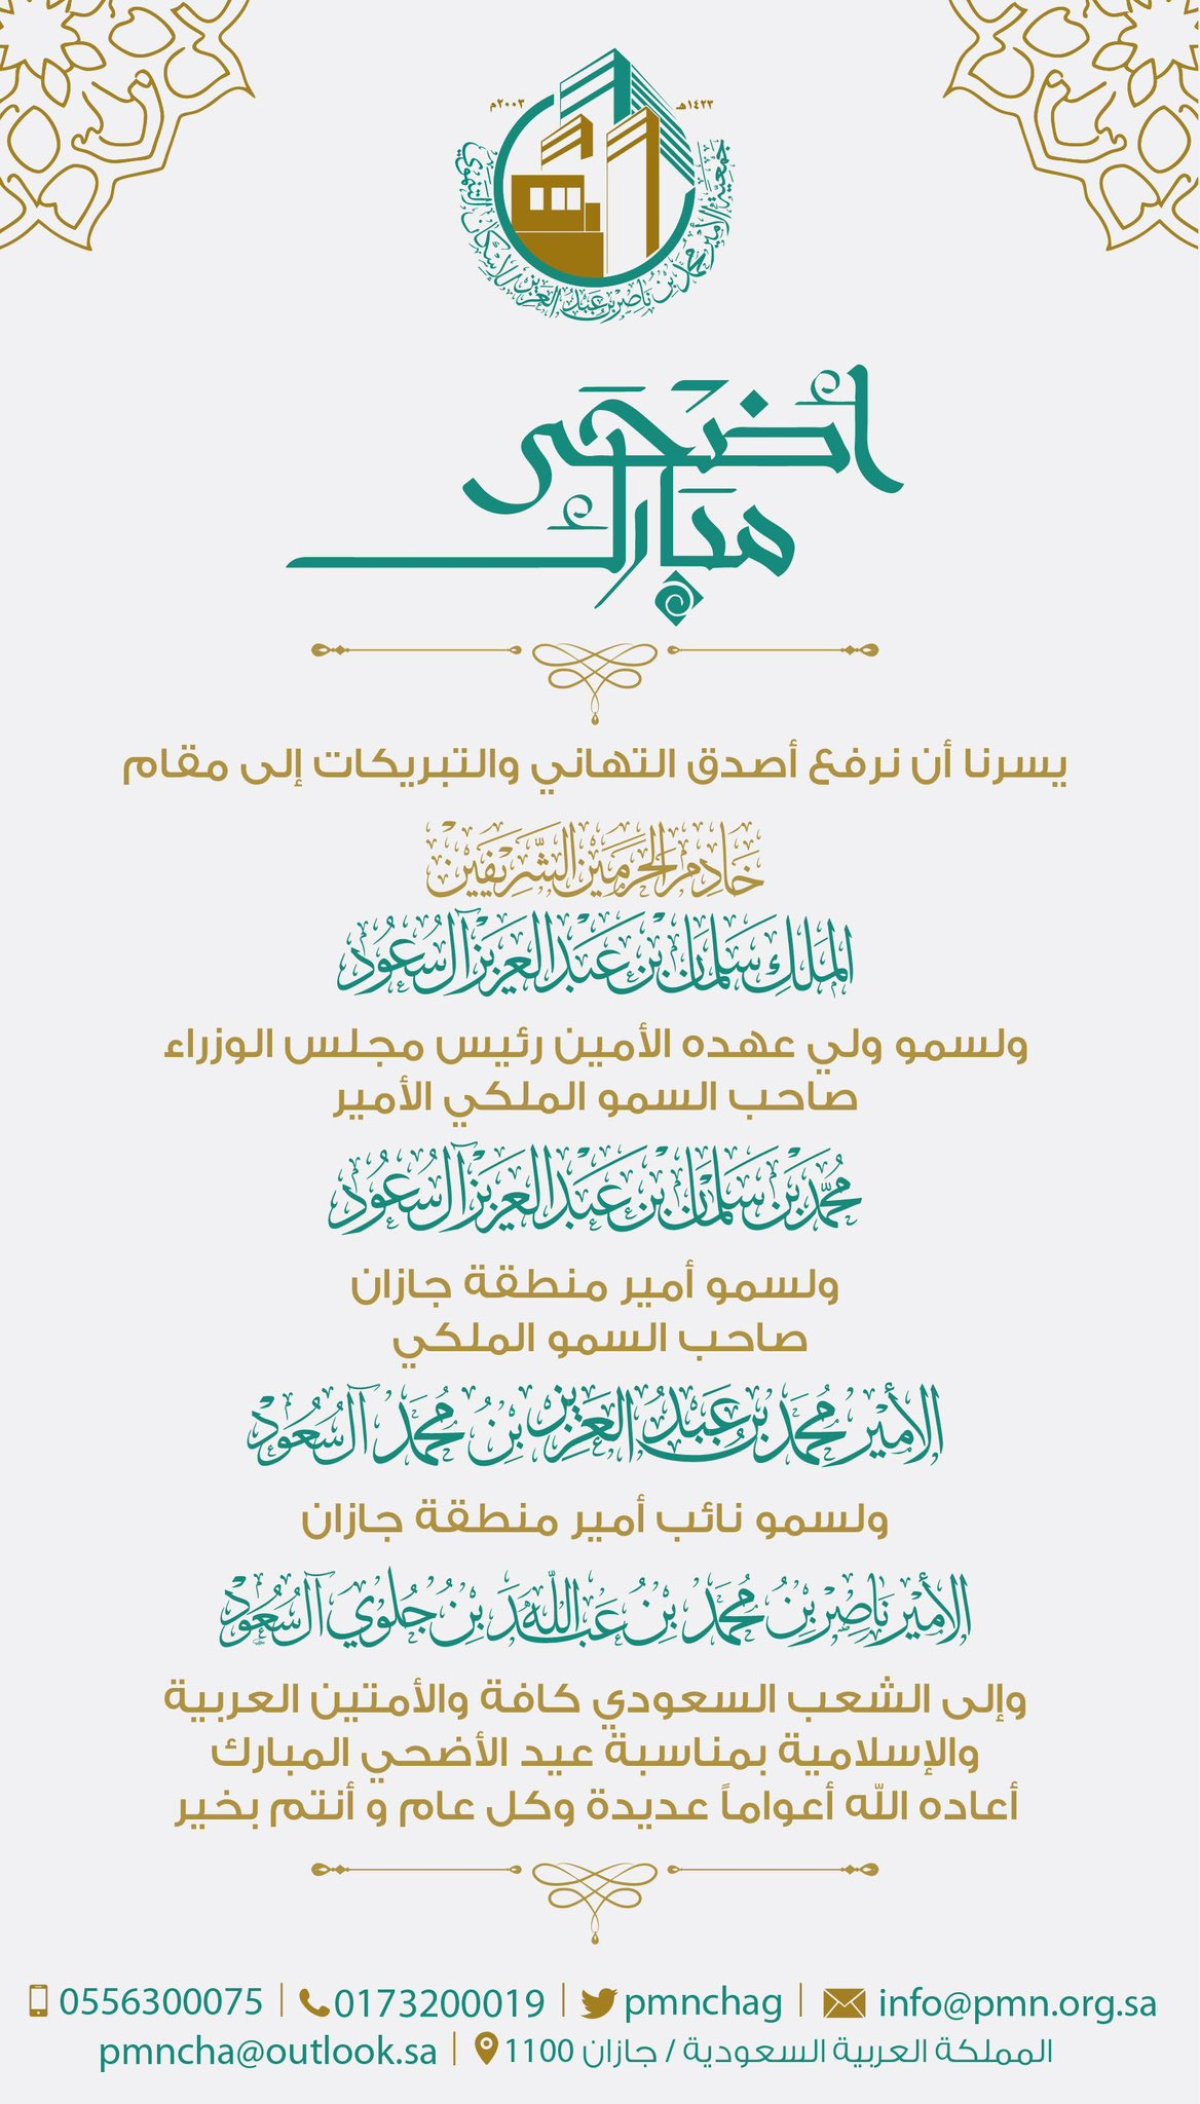 ١٤٢٣هـ
٢٠٠٣م
جمعية الأمير محمد بن ناصر بن عبدالعزيز للإسكان التنموي
أضحى
مبارك
يسرنا أن نرفع أصدق التهاني والتبريكات إلى مقام
خادم الحرمين الشريفين
الملك سلمان بن عبدالعزيز آل سعود
ولسمو ولي عهده الأمين رئيس مجلس الوزراء
صاحب السمو الملكي الأمير
محمد بن سلمان بن عبدالعزيز آل سعود
ولسمو أمير منطقة جازان
صاحب السمو الملكي
الأمير محمد بن عبدالعزيز بن محمد آل سعود
ولسمو نائب أمير منطقة جازان
الأمير ناصر بن محمد بن عبدالله بن جلوي آل سعود
وإلى الشعب السعودي كافة والأمتين العربية
والإسلامية بمناسبة عيد الأضحي المبارك
أعاده الله أعواماً عديدة وكل عام و أنتم بخير
0556300075 | 0173200019 | pmnchag | info@pmn.org.sa
pmncha@outlook.sa | المملكة العربية السعودية / جازان 1100